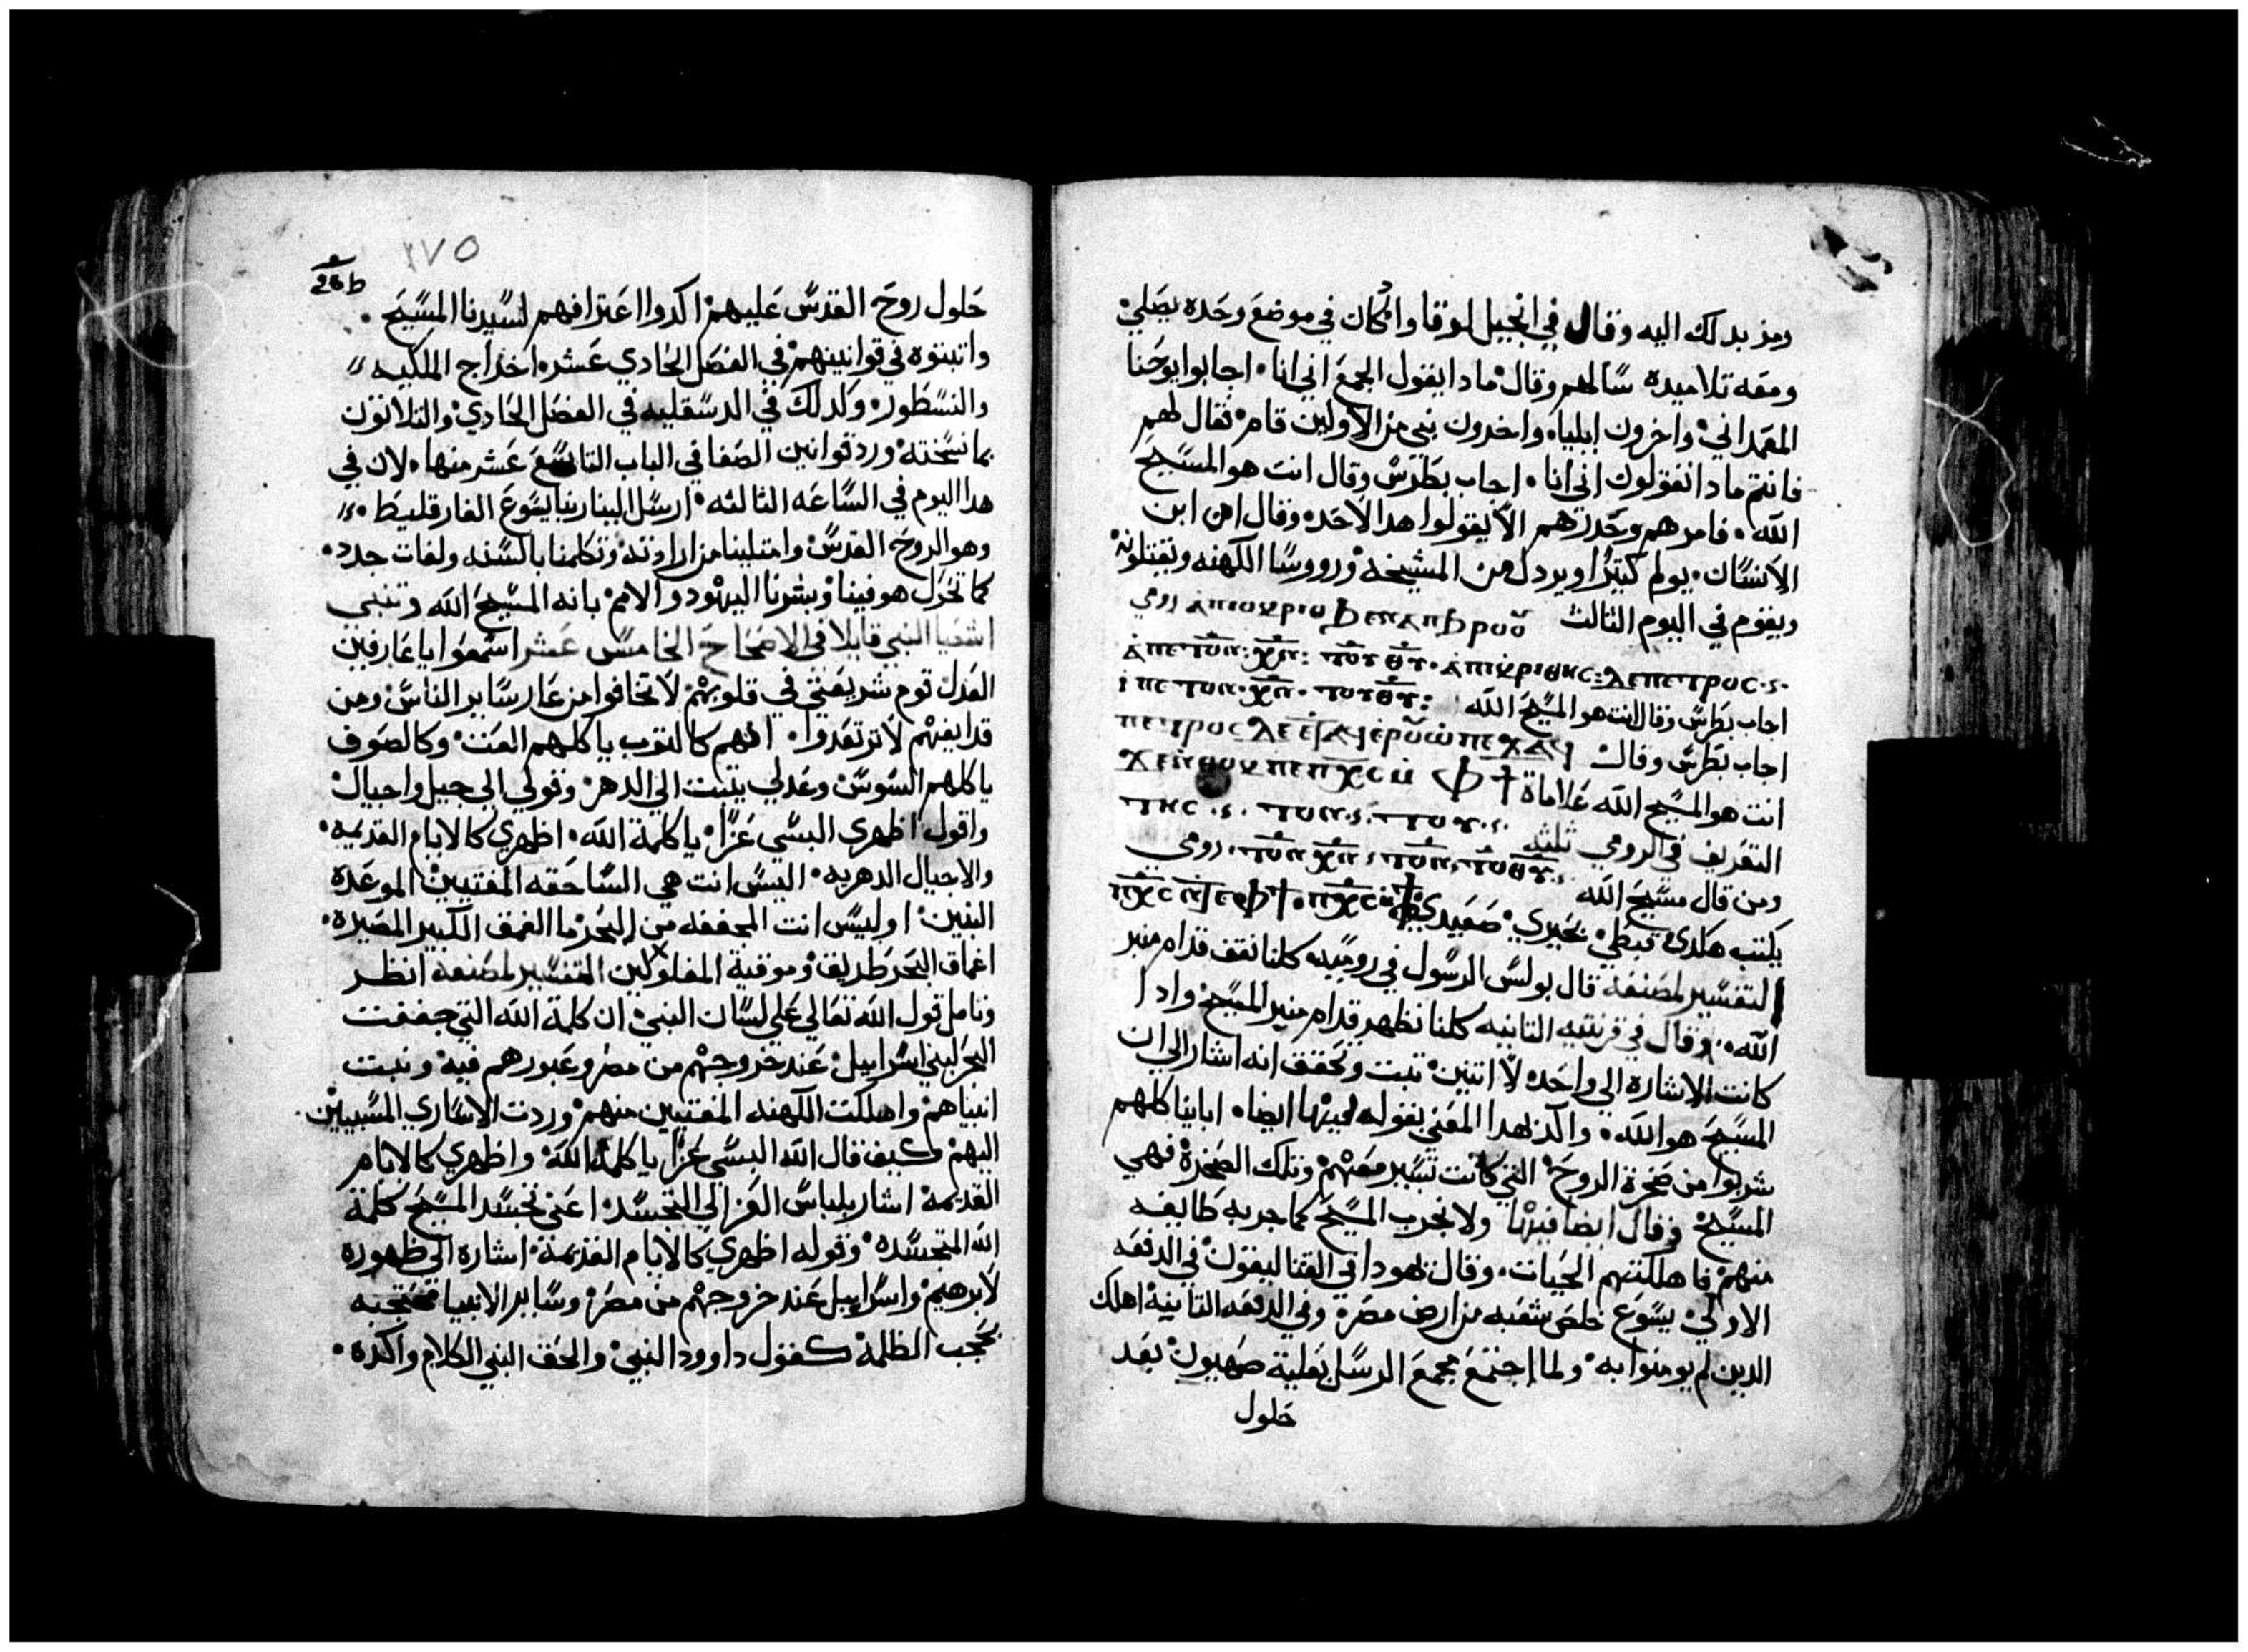 ومز بدلك اليه وقال في انجيل لوقا وانه كان في موضع وحده يصلي
ومعه تلاميده سالهم وقال مادا يقول الجمع اني انا اجابوا يوحنا
المعمداني واخرون ايليا واخرون نبي من الاولين قام فقال لهم
فانتم مادا تقولون اني انا اجاب بطرس وقال انت هو المسيح
الله فامرهم وحدرهم الا يقولوا هدا لاحد وقال ان ابن
الانسان يولم كتيرا ويردل من المشيخه ورووسا الكهنه ويقتلونه
ويقوم في اليوم التالت
اجاب بطرس وقال انت هو المسيح الله
اجاب بطرس وقال
انت هو المسيح الله علاماة
التعريف في الرومي ثلثه
ومن قال مسيح الله رومي
يكتب هكدى قبطي بحيري صعيدي
التفسير لمصنفه قال بولس الرسول في روميه كلنا نقف قدام منبر
الله وقال في قرنتيه التانيه كلنا نظهر قدام منبر المسيح وادا
كانت الاشارة الي واحده لا اتنين تبت وتحقق انه اشار الي ان
المسيح هو الله واكد هدا المعني بقوله ايضا اباينا كلهم
شربوا من صخرة الروح التي كانت تسير معهم وتلك الصخرة فهي
المسيح وقال ايضا فيها ولا نجرب المسيح كما جربه طايفه
منهم فاهلكتهم الحيات وقال يهودا في القتاليقون في الدفعه
الاولي يسوع خلص شعبه من ارض مصر وفي الدفعه التانية اهلك
الدين لم يومنوا به ولما اجتمع مجمع الرسل بعلية صهيون بعد
حلول
١٧٥
حلول روح القدس عليهم اكدوا اعترافهم لسيدنا المسيح
واتبتوه في قوانينهم في الفصل الحادي عشر اخراج الملكيه
والنسطور وكدلك في الدسقليه في الفصل الحادي والتلاتون
بما نسخته ورد قوانين الصفا في الباب التاسع عشر منها لان في
هدا اليوم في الساعه التالته ارسل الينا ربنا يسوع الفارقليط
وهو الروح القدس وامتلينا من ارادته وتكلمنا بالسنه ولغات جدد
كما تحرك هو فينا وبشرنا اليهود والامم بانه المسيح الله وتنبي
اشعيا النبي قايلا في الاصحاح الخامس عشر اسمعوا يا عارفين
العدل قوم شريعتي في قلوبهم لا تخافوا من عار ساير الناس ومن
قدايفهم لا ترتعدوا انهم كالتوب ياكلهم العت وكالصوف
ياكلهم السوس وعدلي يتبت الي الدهر وقولي الي جيل واجيال
واقول اظهري البسي عزا يا كلمة الله اظهري كالايام القديمه
والاجيال الدهريه اليس انت هي الساحقه المفتيين الموعدة
التنين اوليس انت المجففه من البحر ما العمق الكبير المصيره
اعماق البحر طريق وموقية المفلولين التفسير لمصنفه انظر
وتامل قول الله تعالي علي لسان النبي ان كلمة الله التي جففت
البحر لبني اسراييل عند خروجهم من مصر وعبورهم فيه ونبت
انبياهم واهلكت الكهنه المفتيين منهم وردت الاساري المسبيين
اليهم كيف قال الله البسي عزا يا كلمة الله واظهري كالايام
القديمة اشار بلباس العز الي التجسد اعني تجسد المسيح كلمة
الله المتجسده وقوله اظهري كالايام القديمة اشاره الي ظهوره
لابرهيم واسراييل عند خروجهم من مصر وساير الانبيا محتجبه
بحجب الظلمه كقول داوود النبي والحق النبي الكلام واكده